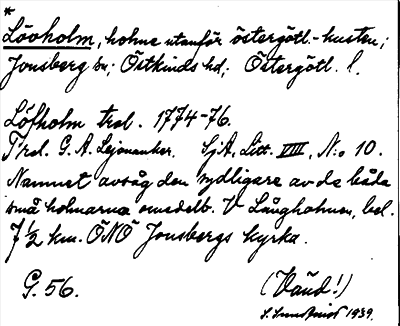 *
Lövholm, holme utanför östergötl.-kusten;
Jonsberg sn; Östkinds hd; Östergötl. l.
Löfholm trol. 1774-76.
Trol. G. A. Lejonanker. SjA, Litt. VIII, N:o 10.
Namnet avsåg den sydligare av de båda
små holmarna omedelb. V Långholmen, bel.
7 1/2 km. ÖNÖ Jonsbergs kyrka.
G. 56. (Vänd!)
1939.